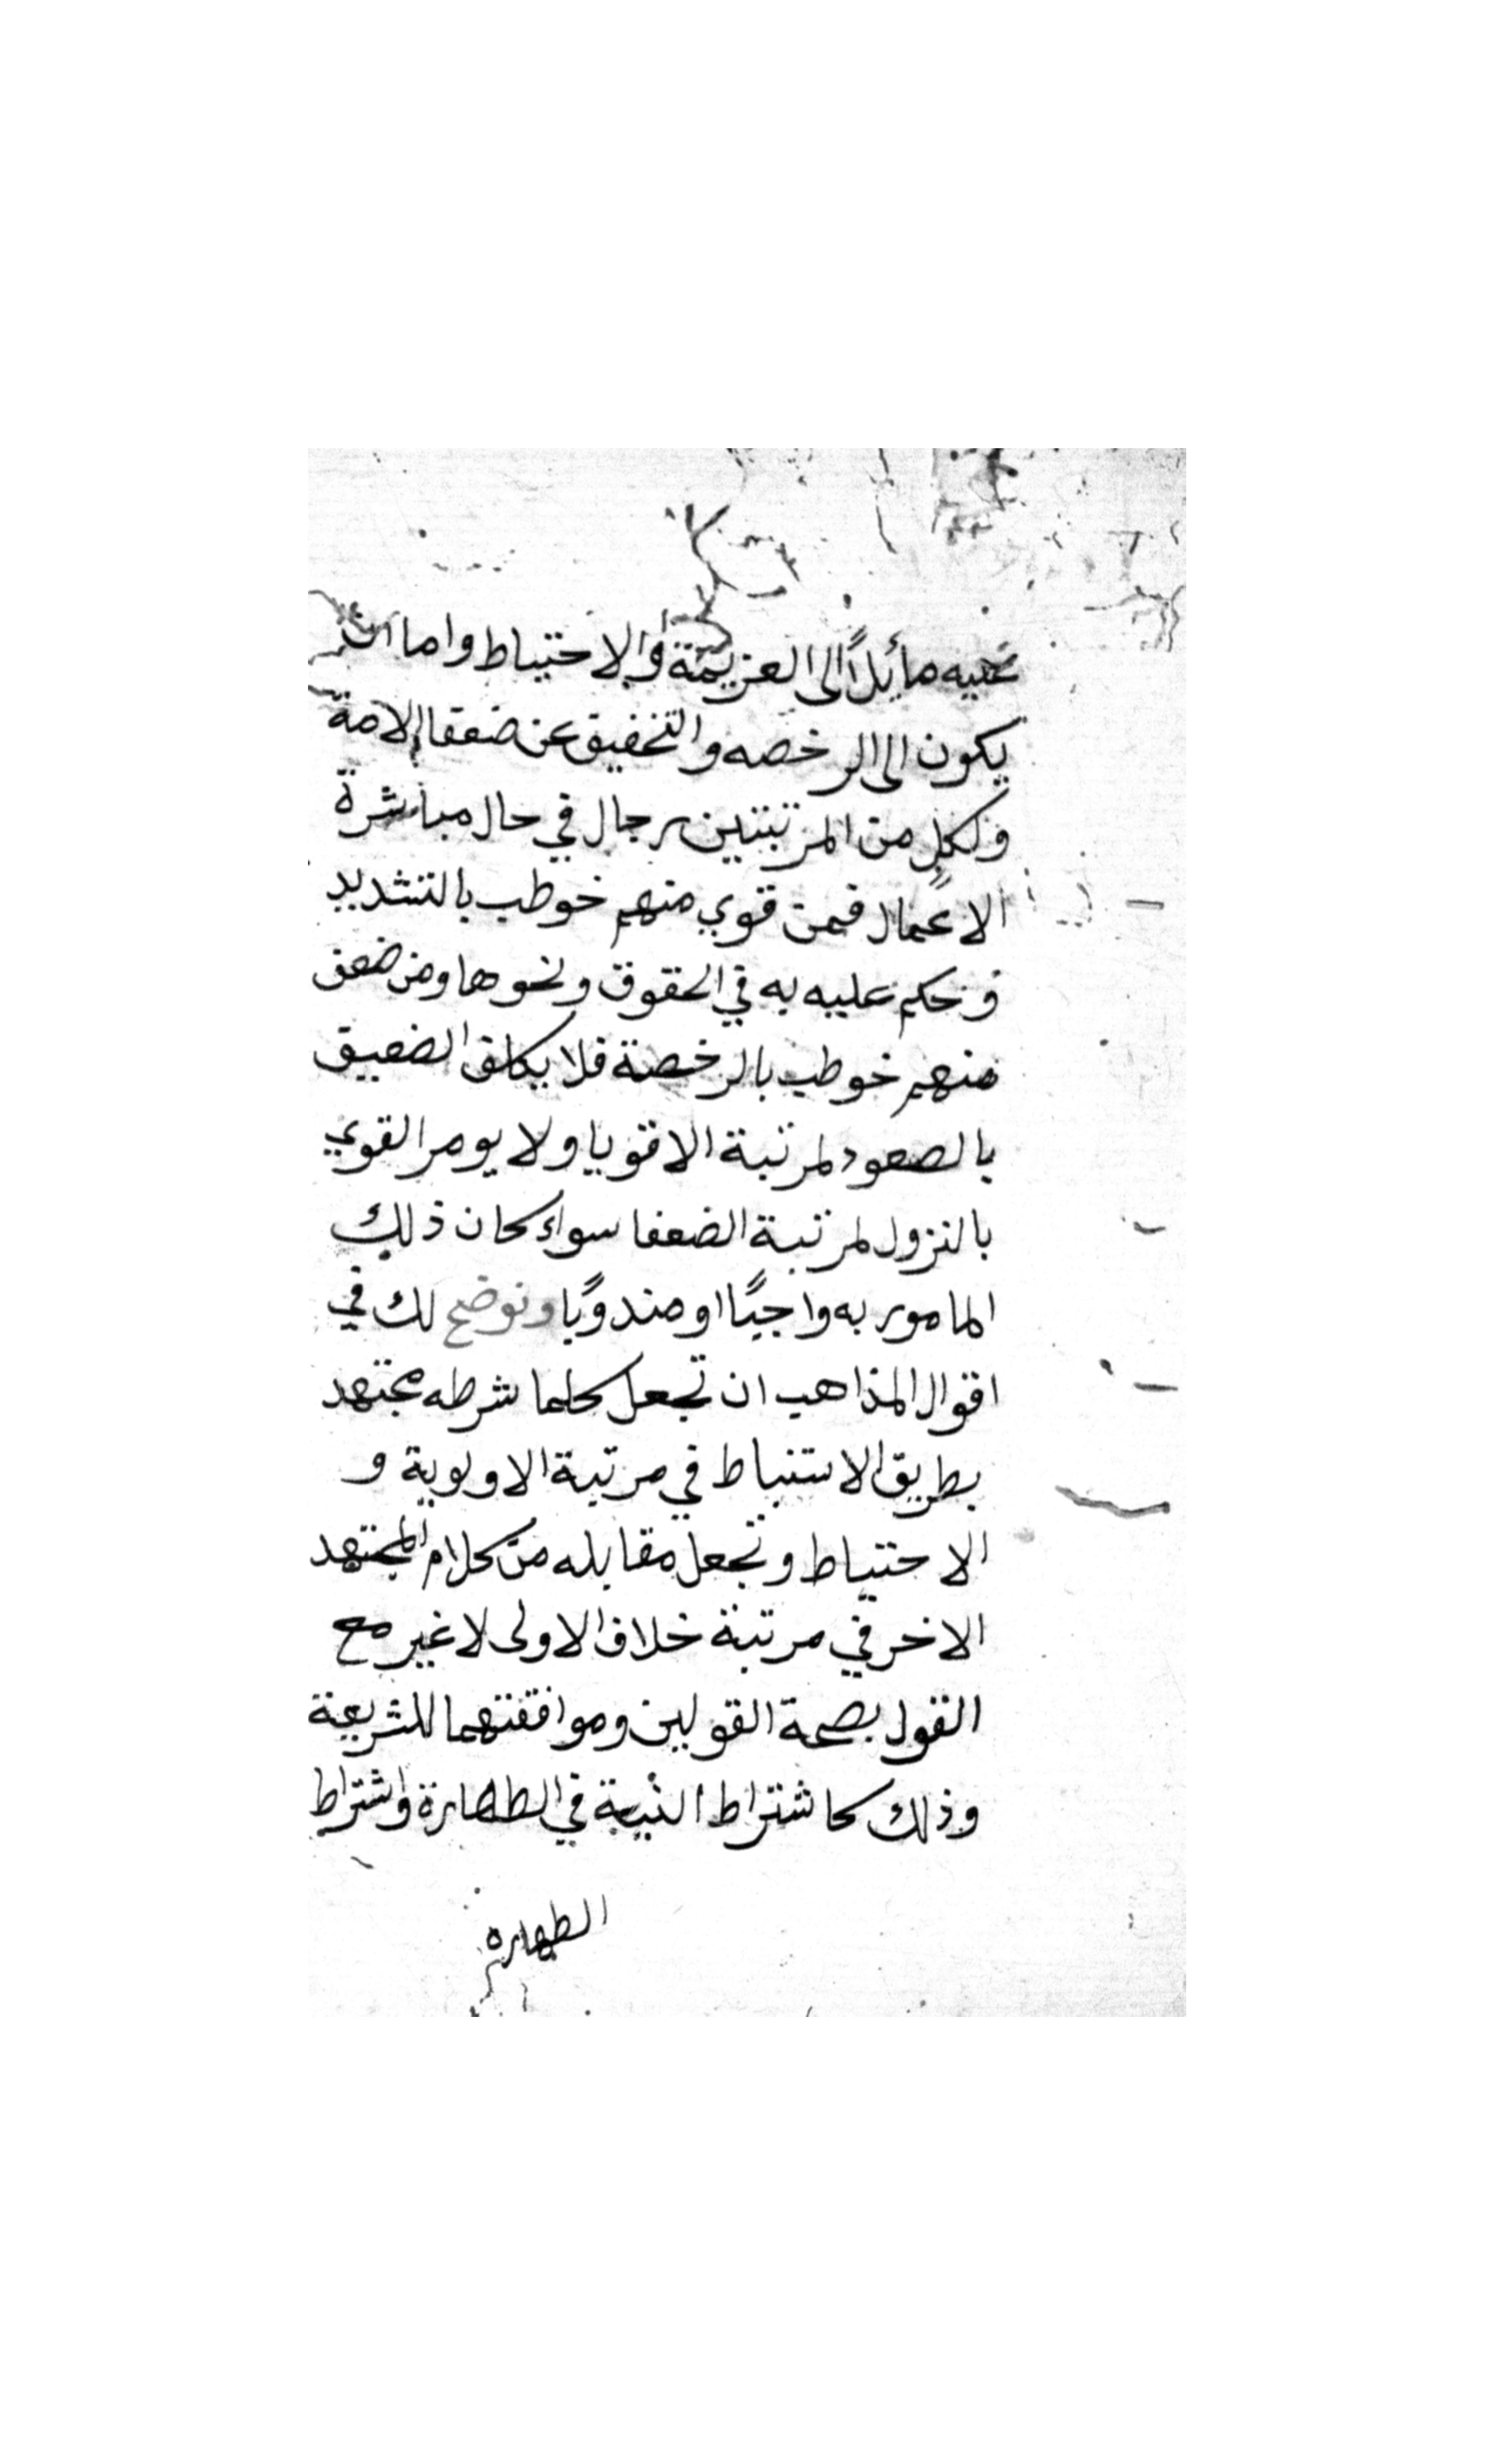 عليه مائلاً الى العزيمة والاحتياط واما ان
يكون الى الرخصه والتخفيف عن ضعفا الامة
ولكلٍ من المرتبتين رجال في حال مباشرة
الاعمال فمن قوي منهم خوطب بالتشديد
وحكم عليه به في الحقوق ونحوها ومن ضعف
منهم خوطب بالرخصة فلا يكلف الضعيف
بالصعود لمرتبة الاقويا ولا يومر القوي
بالنزول لمرتبة الضعفا سواء كان ذلك
المامور به واجبًا او مندوبًا ونوضح لك في
اقوال المذاهب ان تجعل كلما شرطه مجتهد
بطريق الاستنباط في مرتبة الاولوية و
الاحتياط وتجعل مقابله من كلام المجتهد
الاخر في مرتبة خلاف الاولى لا غير مع
القول بصحة القولين وموافقتهما للشريعة
وذلك كاشتراط النية في الطهارة واشتراط
الطهاره